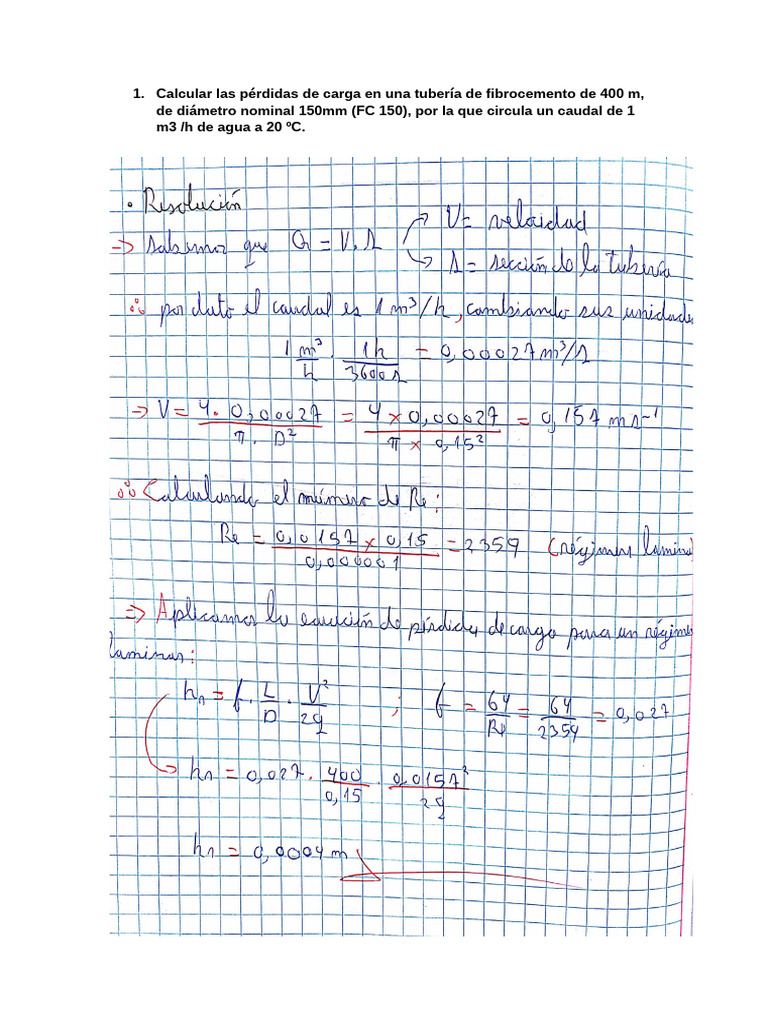 1. Calcular las pérdidas de carga en una tubería de fibrocemento de 400 m,
de diámetro nominal 150mm (FC 150), por la que circula un caudal de 1
m3 /h de agua a 20 ºC.
• Resolución
=> Sabemos que Q = V.S
V = velocidad
S = sección de la tubería
∴ por dato el caudal es 1 m³/h, cambiando sus unidades
1 m³/h . 1h/3600s = 0,00027 m³/s
=> V = 4 . 0,00027 / π . D² = 4 x 0,00027 / π x 0,15² = 0,157 ms⁻¹
∴ Calculando el número de Re:
Re = 0,0157 x 0,15 / 0,000001 = 2359 (régimen lamina
=> Aplicamos la ecuación de pérdidas de carga para un régimen
laminar:
h₁ = f . L/D . V²/2g ; f = 64/Re = 64/2359 = 0,027
h₁ = 0,027 . 400/0,15 . 0,0157²/2g
h₁ = 0,0004 m